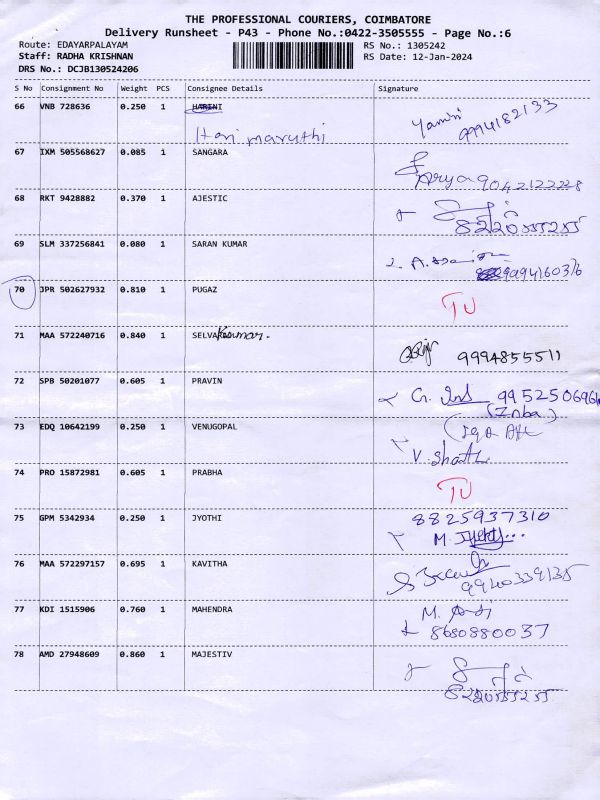 THE PROFESSIONAL COURIERS, COIMBATORE
Delivery Runsheet - P43 - Phone No.:0422-3505555 - Page No.:6
Route: EDAYARPALAYAM RS No.: 1305242
Staff: RADHA KRISHNAN RS Date: 12-Jan-2024
DRS No.: DCJB130524206
S No Consignment No Weight PCS Consignee Details Signature
66 VNB 728636 0.250 1 HARINI Yamini
Hari maruthi 9994182133
67 IXM 505568627 0.085 1 SANGARA
Arya 9042122228
68 RKT 9428882 0.370 1 AJESTIC
8220555255
69 SLM 337256841 0.080 1 SARAN KUMAR
9994160376
70 JPR 502627932 0.810 1 PUGAZ
TU
71 MAA 572240716 0.840 1 SELVAKumar.
9994855511
72 SPB 50201077 0.605 1 PRAVIN
G. 9952506964
(Znba)
73 EDQ 10642199 0.250 1 VENUGOPAL
V.
74 PRO 15872981 0.605 1 PRABHA
TU
75 GPM 5342934 0.250 1 JYOTHI 8825937310
M.
76 MAA 572297157 0.695 1 KAVITHA
9940339135
77 KDI 1515906 0.760 1 MAHENDRA M.
8680880037
78 AMD 27948609 0.860 1 MAJESTIV
8220555255